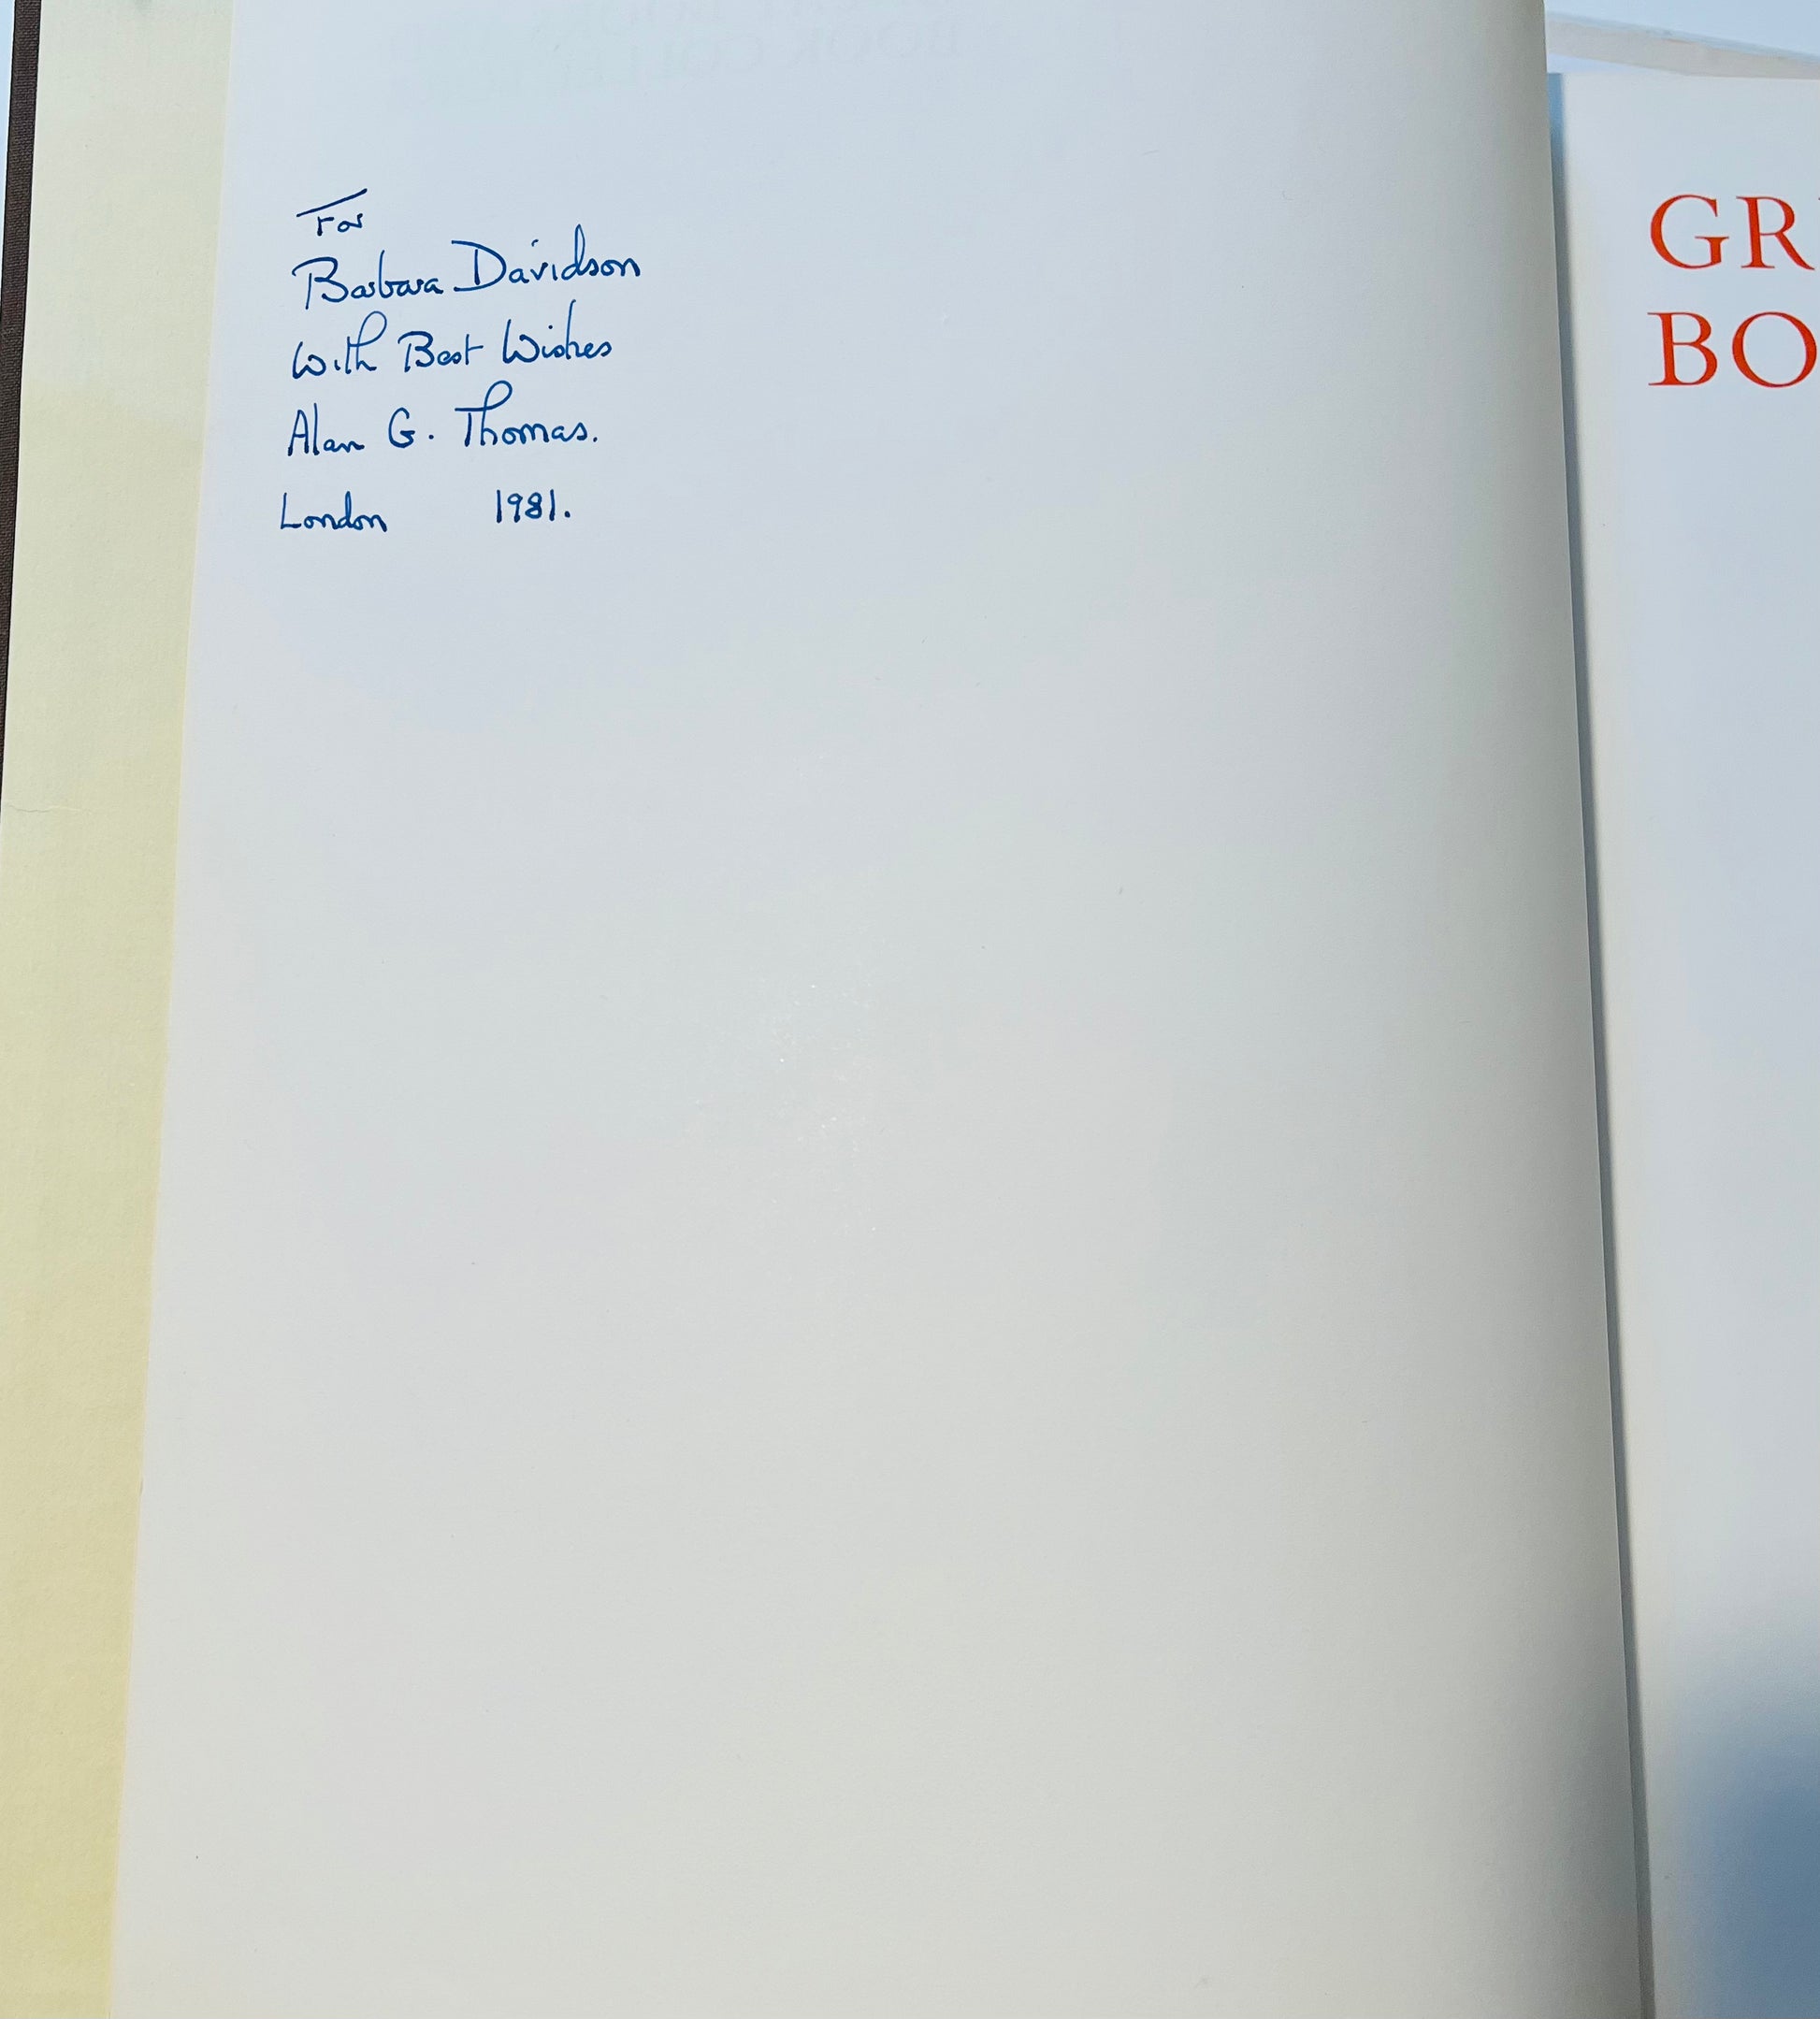 For
Barbara Davidson
With Best Wishes
Alan G. Thomas.
London 1981.
GR
BO